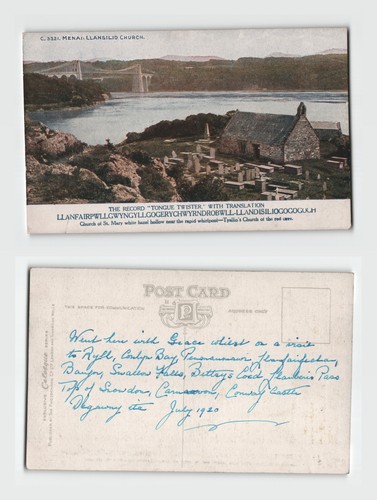 C.3321. MENAI: LLANSILIO CHURCH.
THE RECORD "TONGUE TWISTER," WITH TRANSLATION
LLANFAIRPWLLGWYNGYLLGOGERYCHWYRNDROBWLL-LLANDISILIOGOGOGOCH
Church of St. Mary white hazel hollow near the rapid whirlpool—Tysilio's Church of the red cave.
POST CARD
THIS SPACE FOR COMMUNICATION
ADDRESS ONLY
Went here with Grace whilst on a visit
to Rhyl, Conlyn Bay, Penmaenmawr, Llanfairfechan,
Bangor, Swallow Falls, Bettsys Coed, Llanberis Pass
Top of Snowdon, Carnarvon, Conway Castle
Degannwy etc July 1920